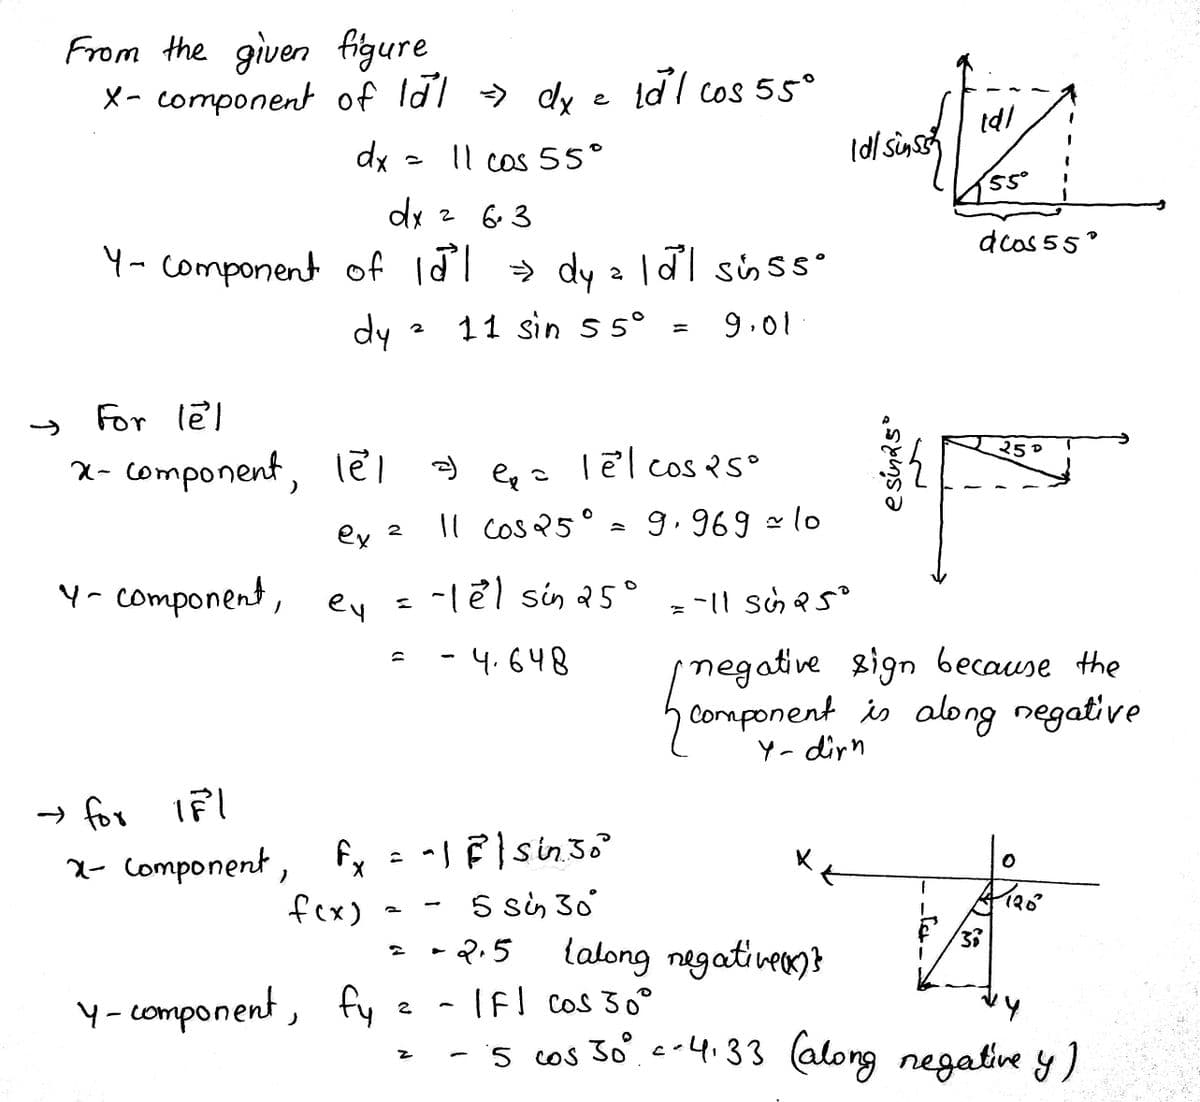 From the given figure
X- component of |d⃗| ⇒ dx = |d⃗| cos 55°
dx = 11 cos 55°
dx = 6.3
Y- component of |d⃗| ⇒ dy = |d⃗| sin 55°
dy = 11 sin 55° = 9.01
|d| sin 55
|d|
55°
d cos 55°
→ For |e⃗|
x- component, |e⃗| ⇒ ex = |e⃗| cos 25°
ex = 11 cos 25° = 9.969 ≃ 10
Y- component, ey = -|e⃗| sin 25° = -11 sin 25°
= - 4.648
{negative sign because the
component is along negative
Y- dirn
e sin 25°
25°
→ for |F⃗|
x- component, fx = -|F⃗| sin 30°
f(x) = - 5 sin 30°
= - 2.5 {along negative(x)}
Y- component, fy = - |F| cos 30°
= - 5 cos 30° = -4.33 (along negative y)
X
O
120°
F⃗
30°
Y